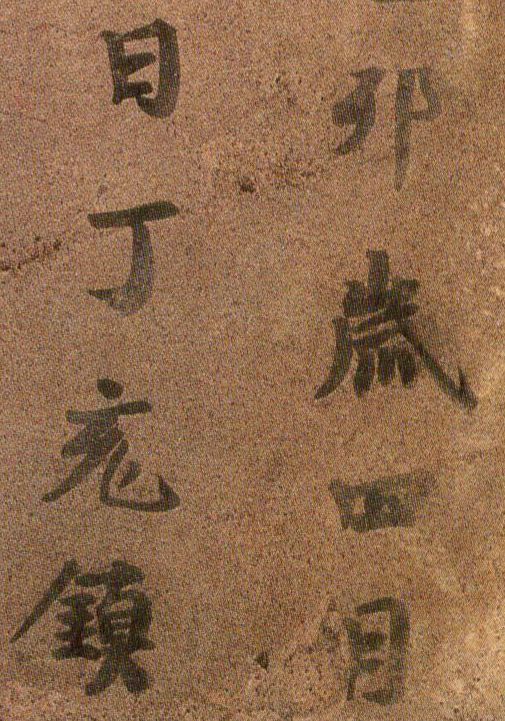 卯歲四月
日丁亥鎮